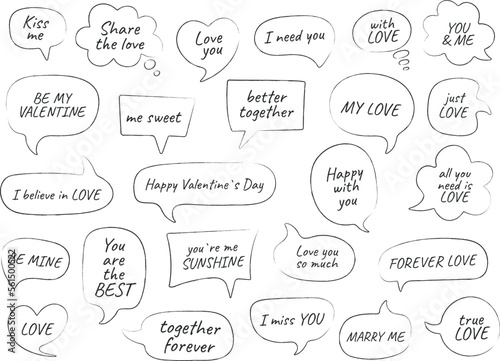 Kiss
me
Share
the love
Love
you
I need you
with
LOVE
YOU
& ME
BE MY
VALENTINE
me sweet
better
together
MY LOVE
just
LOVE
I believe in LOVE
Happy Valentine`s Day
Happy
with
you
all you
need is
LOVE
BE MINE
You
are
the
BEST
you`re me
SUNSHINE
Love you
so much
FOREVER LOVE
LOVE
together
forever
I miss YOU
MARRY ME
true
LOVE
Adobe Stock
561500682